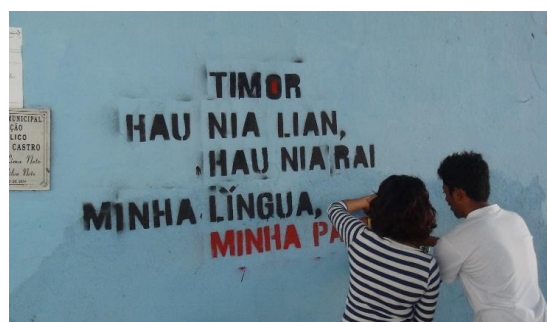 TIMOR
HAU NIA LIAN,
HAU NIA RAI
MINHA LÍNGUA,
MINHA PA
UNICIPAL
ÇÃO
LICO
CASTRO
Neto
Neto